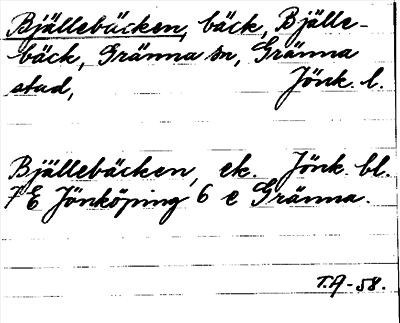 Bjällebäcken, bäck, Bjälle-
bäck, Gränna sn, Gränna
stad, Jönk. l.
Bjällebäcken, ek. Jönk. bl.
7E Jönköping 6 e Gränna.
T.A-58.